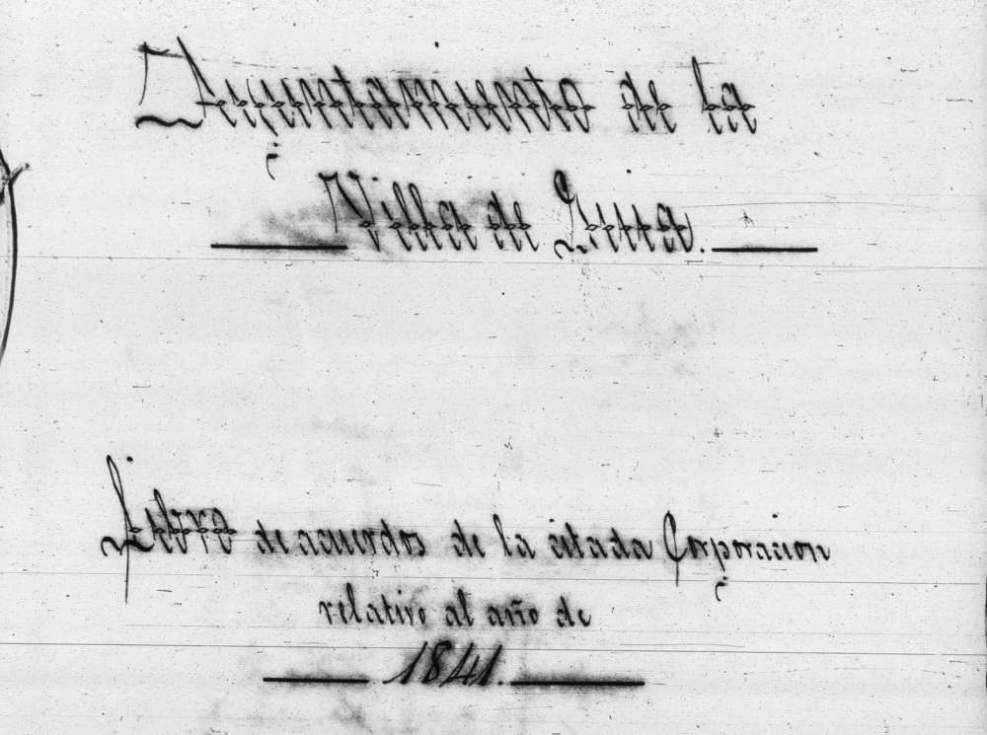 Ayuntamiento de la
Villa de Guia.
Libro de acuerdos de la citada Corporacion
relativo al año de
1841.